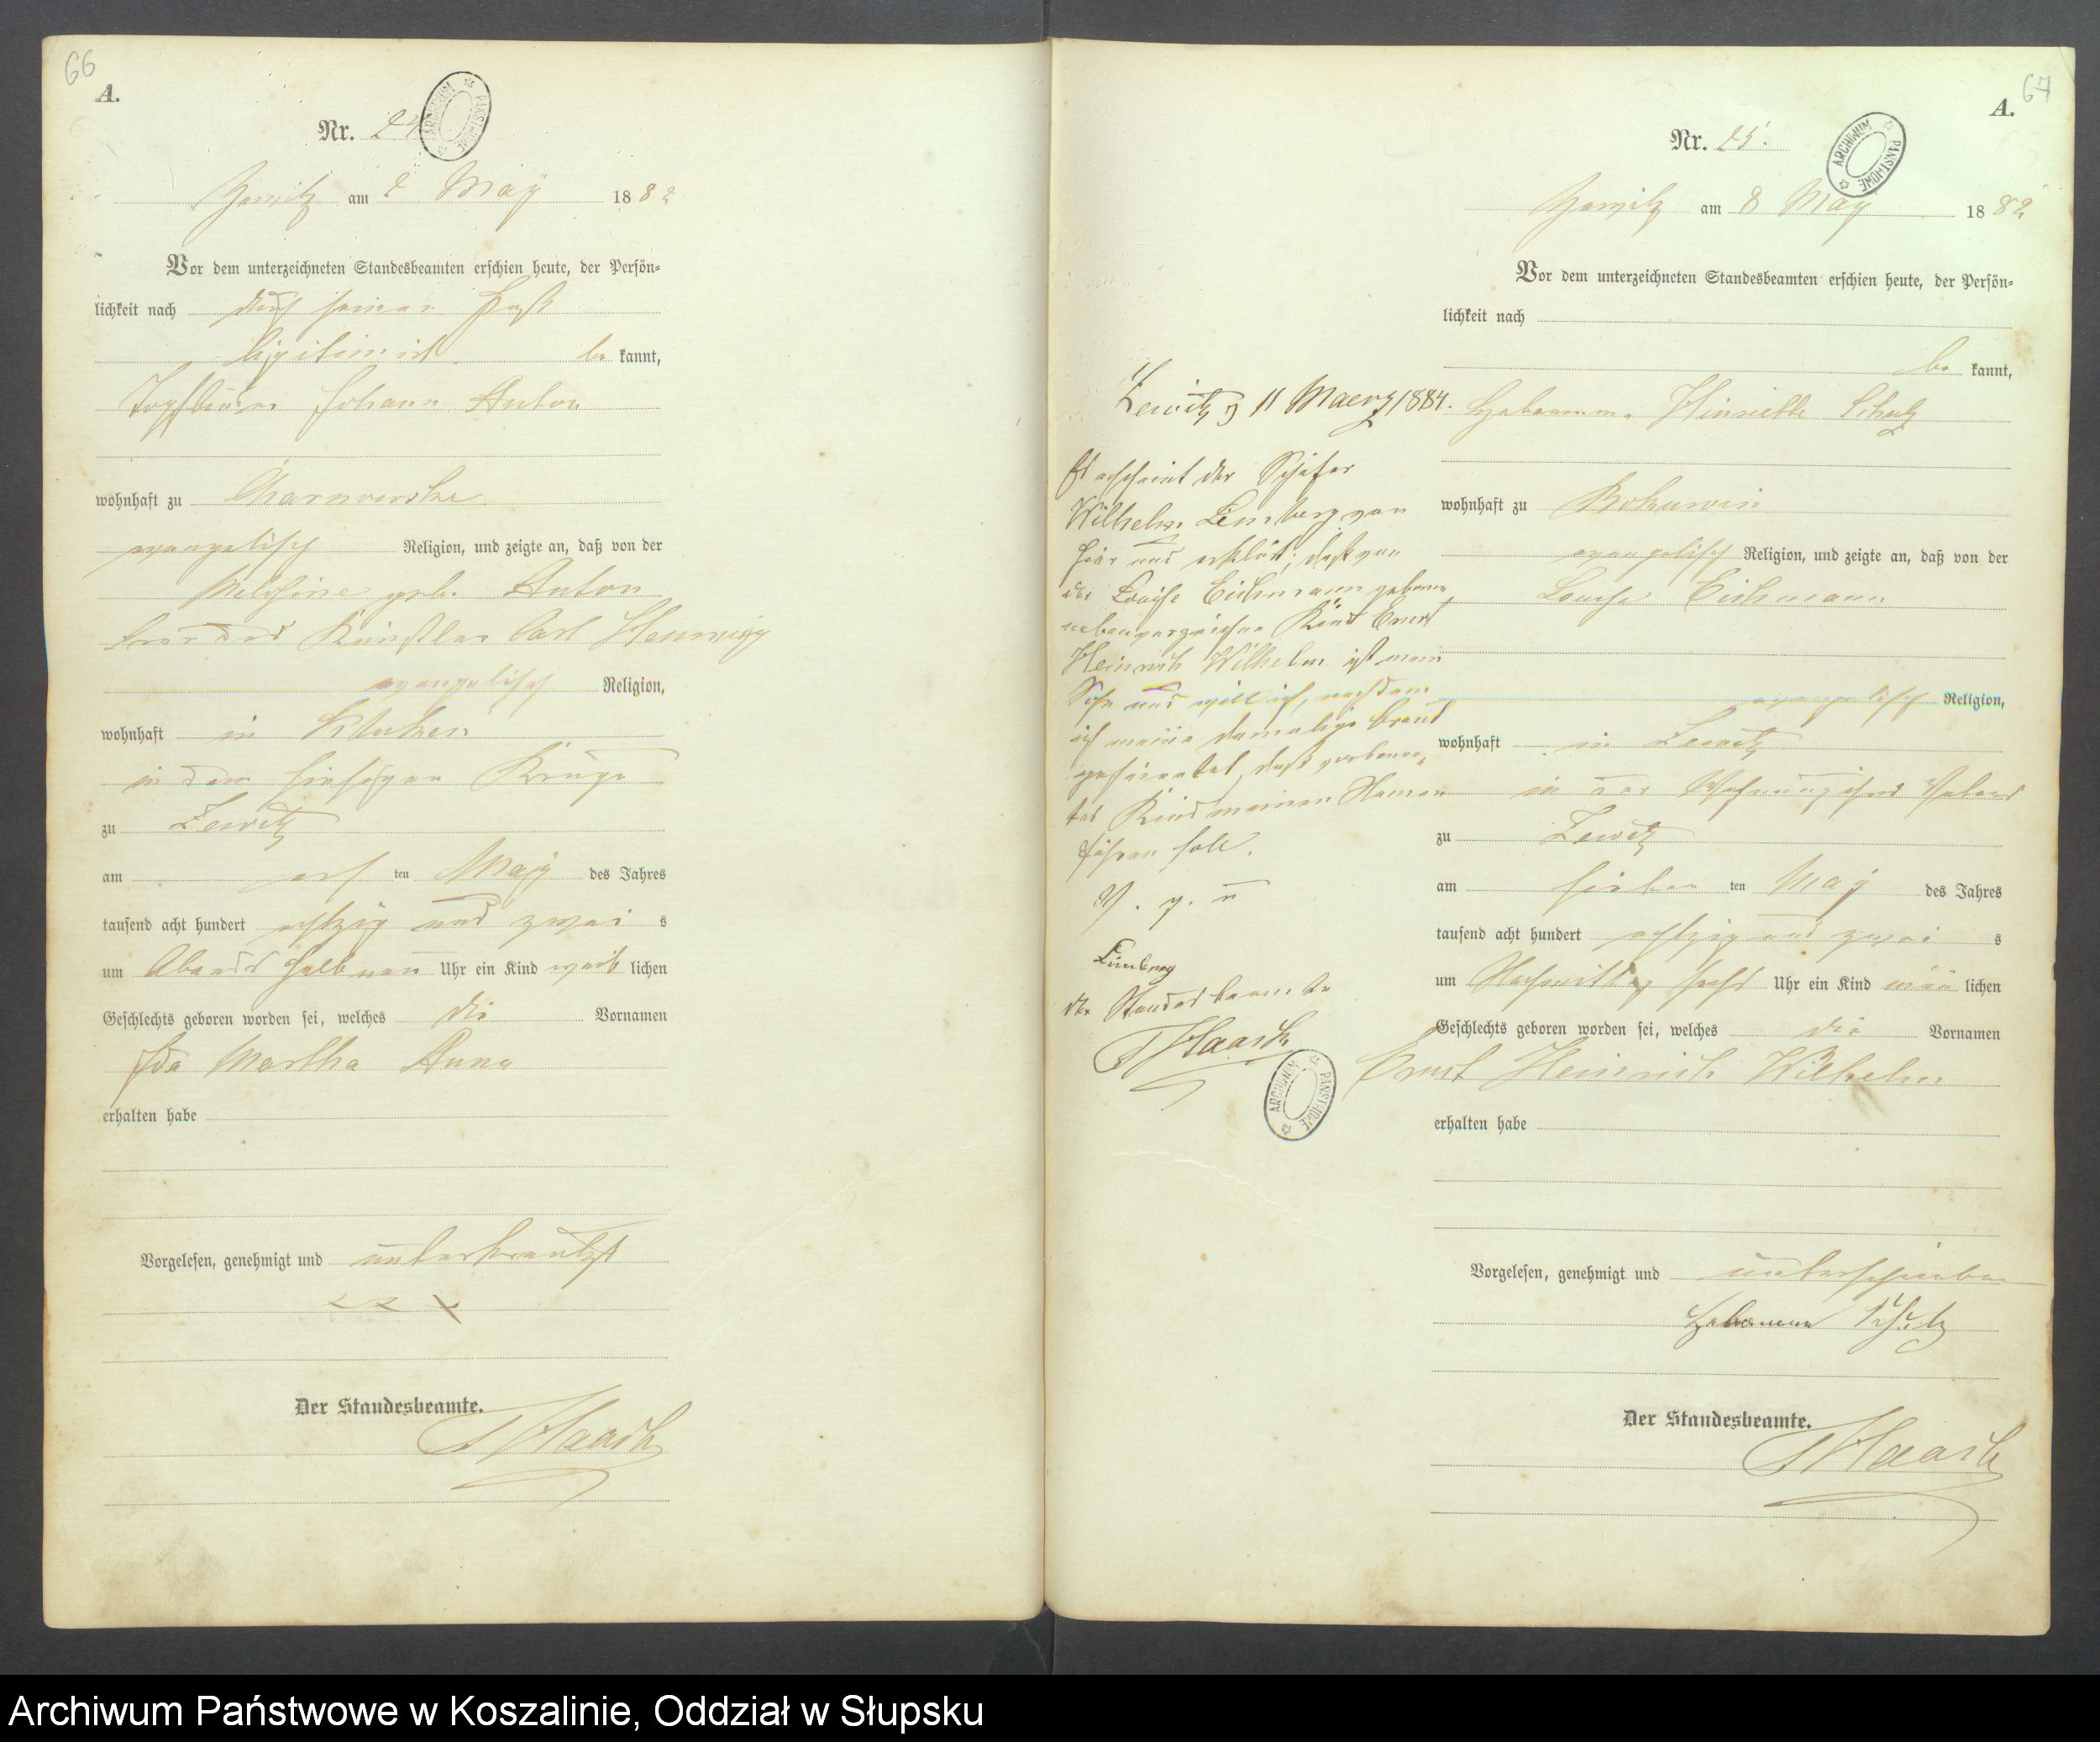 66
A.
Nr. 24
ARCHIWUM PAŃSTWOWE
am 2 May 1882
Vor dem unterzeichneten Standesbeamten erschien heute, der Persön-
lichkeit nach durch seinen Paß
legitimirt be kannt,
Topfbinder Johann Anton
wohnhaft zu Charnowske
evangelisch Religion, und zeigte an, daß von der
geb. Anton
Frau des Künstler Carl Hennig
evangelisch Religion,
wohnhaft in
in dem hiesigen Kruge
zu Zewitz
am erst ten May des Jahres
tausend acht hundert achtzig und zwei s
um Abends halb neun Uhr ein Kind weib lichen
Geschlechts geboren worden sei, welches die Vornamen
Ida Martha Anna
erhalten habe
Vorgelesen, genehmigt und unterkreutzt
x x x
Der Standesbeamte.
Haack
67
A.
Nr. 25.
ARCHIWUM PAŃSTWOWE
am 8 May 1882
Vor dem unterzeichneten Standesbeamten erschien heute, der Persön-
lichkeit nach
be kannt,
Hebamme Henriette Schulz
wohnhaft zu
evangelisch Religion, und zeigte an, daß von der
Louise Eichmann
evangelisch Religion,
wohnhaft in Zewitz
in der Wohnung ihres Vaters
zu Zewitz
am sieben ten May des Jahres
tausend acht hundert achtzig und zwei s
um Nachmittag sechs Uhr ein Kind män lichen
Geschlechts geboren worden sei, welches die Vornamen
Ernst Heinrich Wilhelm
erhalten habe
Vorgelesen, genehmigt und unterschrieben
Hebamme Schulz
Der Standesbeamte.
Haack
Zewitz d 11 Maerz 1884.
Es erscheint der Schäfer
Wilhelm Limberg von
hier und erklärt, daß von
der Louise Eichmann geborne
nebenverzeichnete Kind Ernst
Heinrich Wilhelm ist mein
Sohn und will ich, nachdem
ich meine damalige Braut
geheirathet, daß
Kind meinen Namen
führen soll.
V. g. u
Limberg
der Standesbeamte
Haack
ARCHIWUM PAŃSTWOWE
Archiwum Państwowe w Koszalinie, Oddział w Słupsku